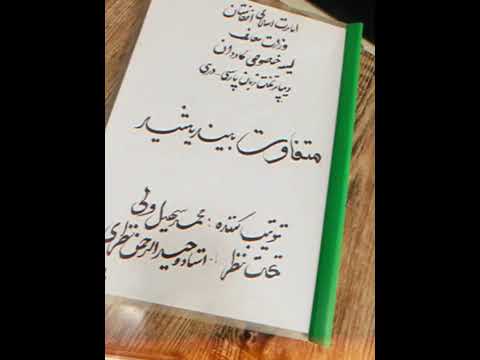 امارت اسلامی افغانستان
وزارت معارف
لیسه خصوصی کادردان
دیپارتمنت زبان پارسی-دری
متفاوت بیندیشید
ترتیب کننده: محمد سهیل ولی
تحت نظر: استاد وحیدالرحمن نظری